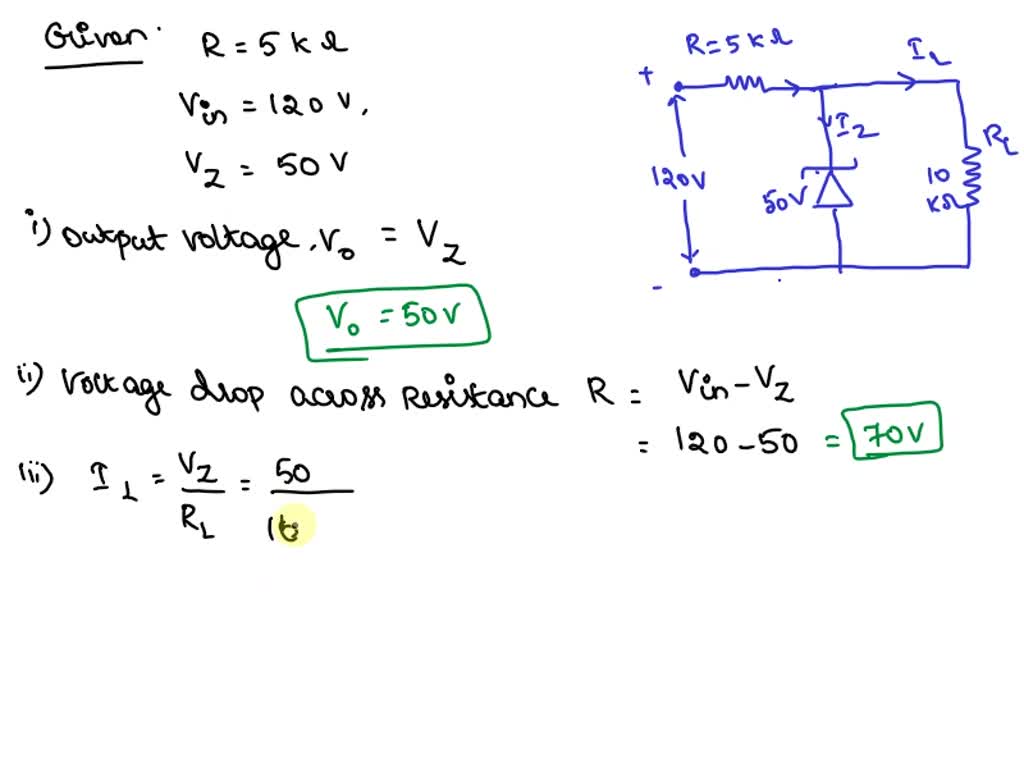 Given:
R = 5 k Ω
Vin = 120 V,
VZ = 50 V
i) output voltage, Vo = VZ
Vo = 50V
ii) Voltage drop across Resistance R = Vin - VZ
= 120 - 50 = 70V
iii) IL = VZ / RL = 50 /
R = 5 k Ω
IL
+
IZ
RL
120V
50V
10
kΩ
-